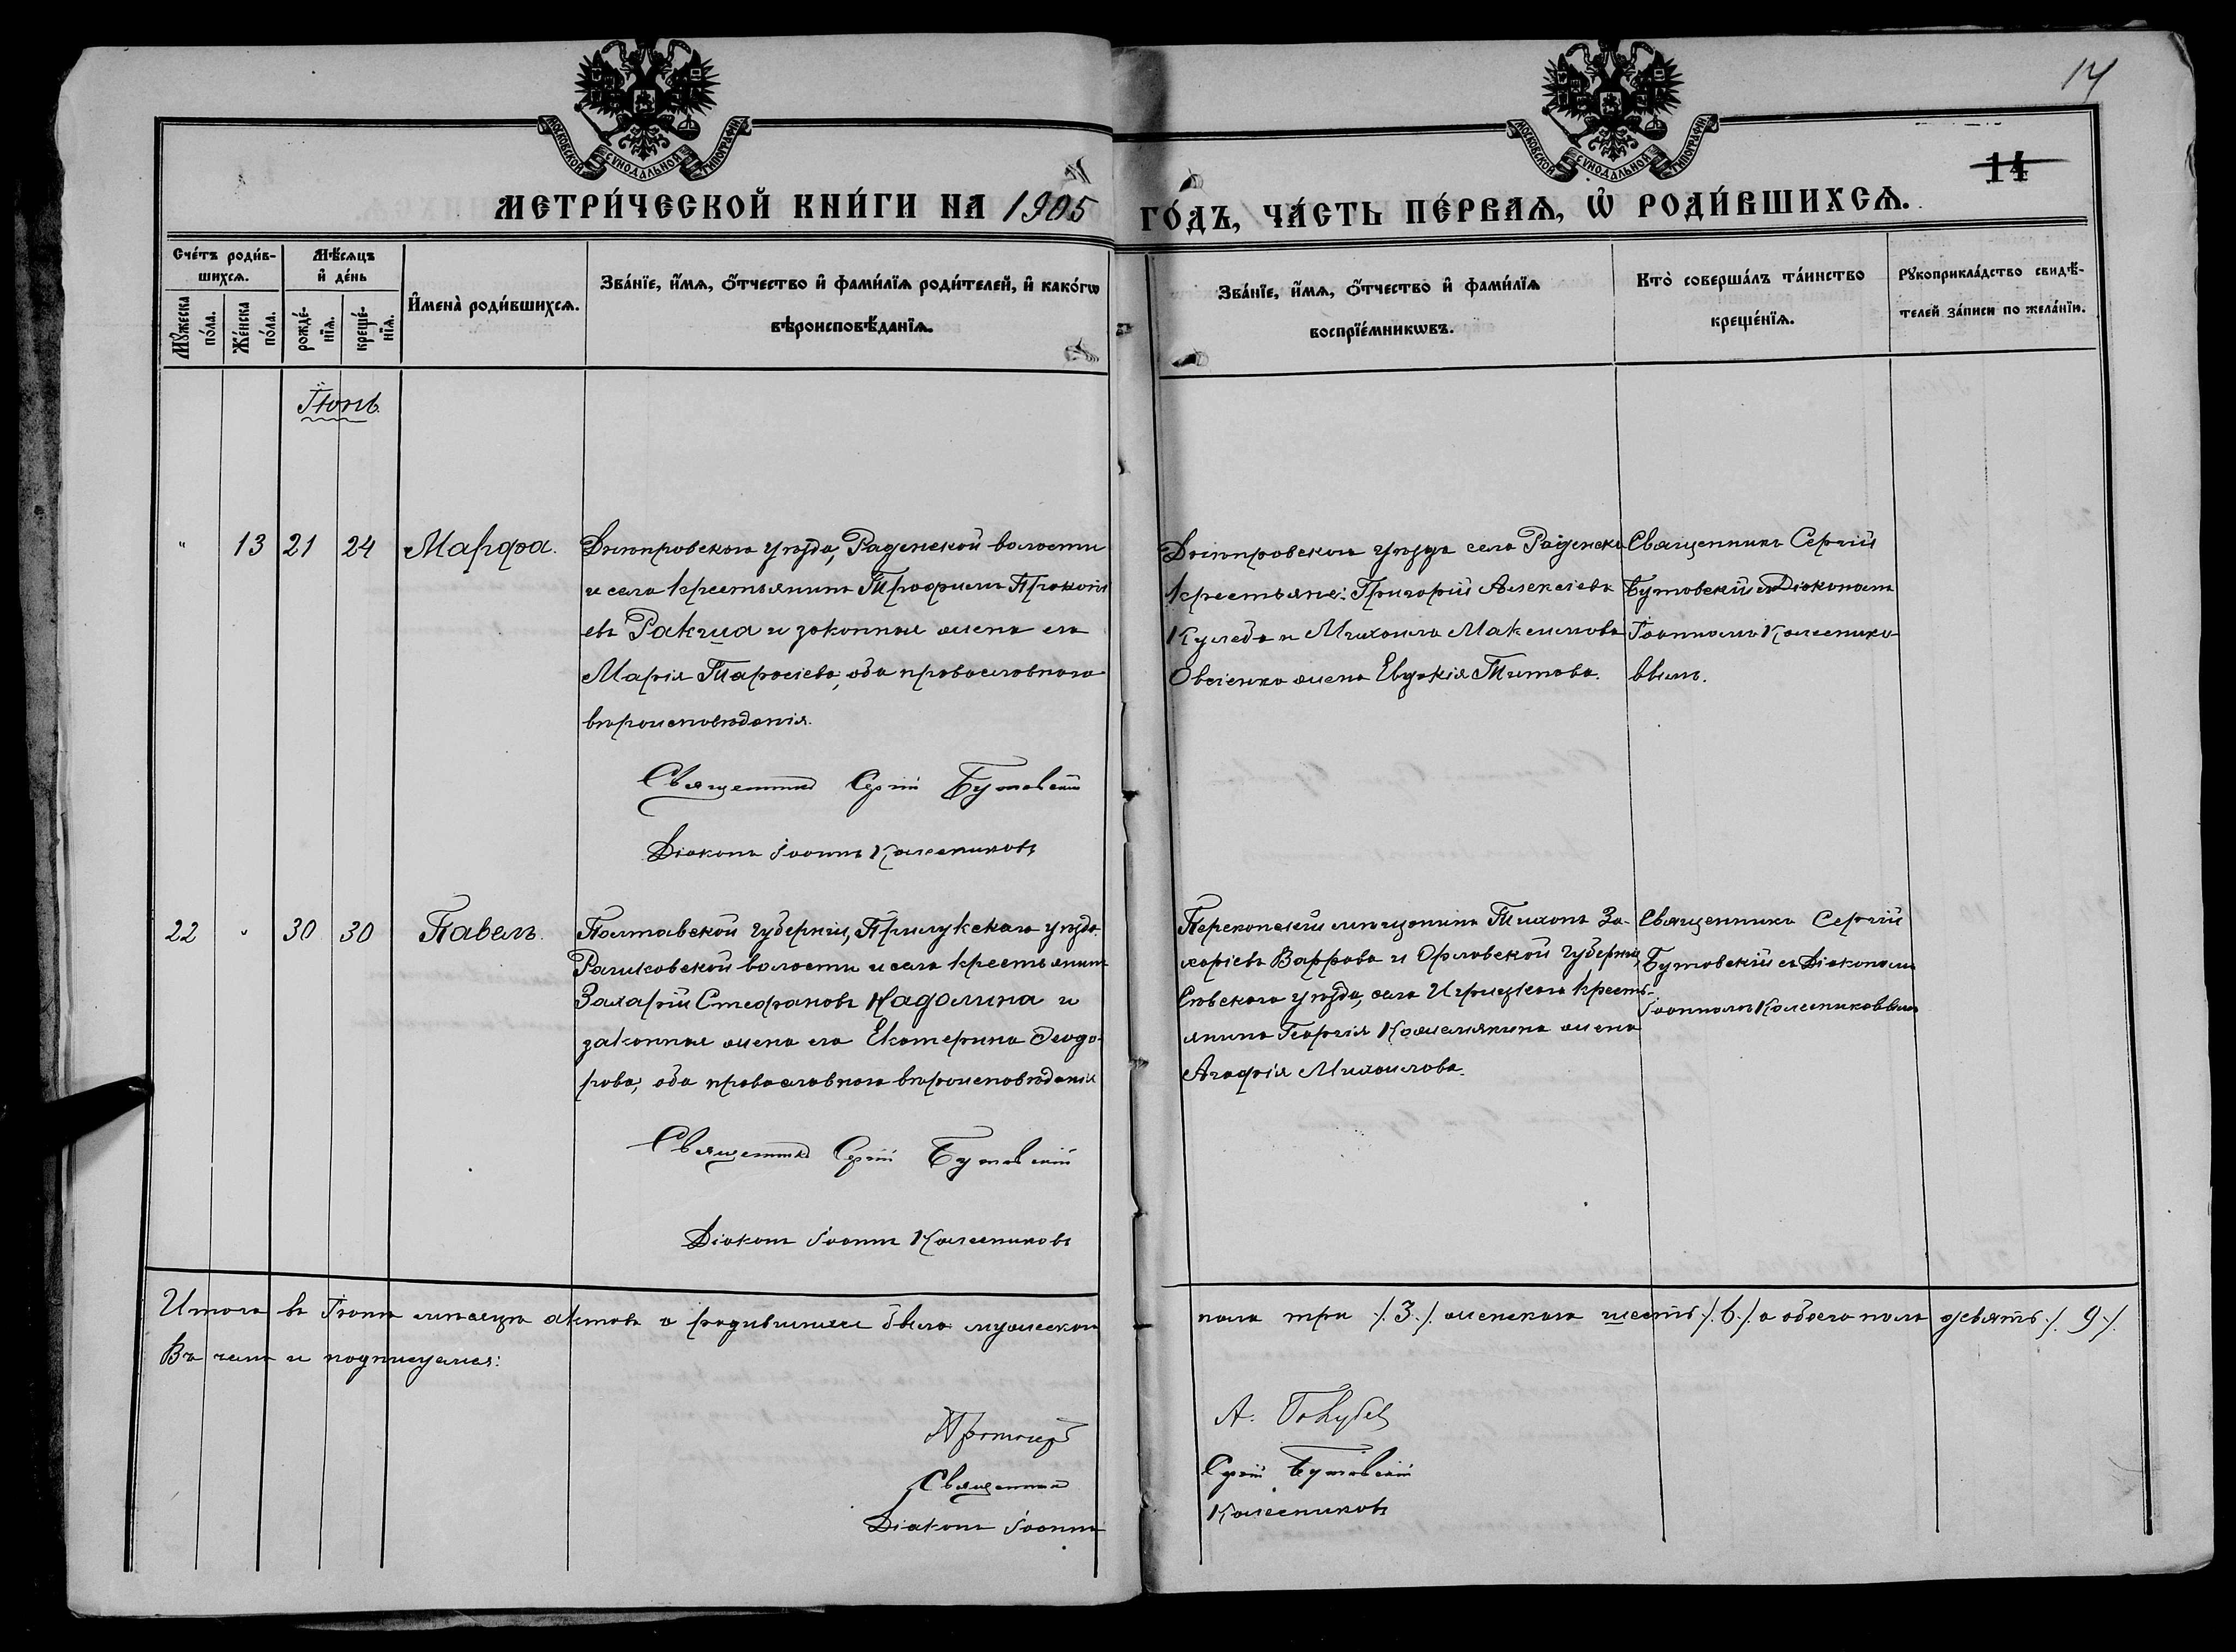 14
14
МОСКОВСКОЙ СѴНОДАЛЬНОЙ ТИПОГРАФИИ
МОСКОВСКОЙ СѴНОДАЛЬНОЙ ТИПОГРАФИИ
МЕТРИ́ЧЕСКОЙ КНИ́ГИ НА 1905 ГО́ДЪ, ЧА́СТЬ ПЕ́РВАѦ, Ѡ҆ РОДИ́ВШИХСѦ.
Сче́тъ роди́в-
шихсѧ.
Мꙋ́жеска
по́ла.
Же́нска
по́ла.
Мѣ́сяцъ
и҆ де́нь
рожде́-
нїѧ.
креще́-
нїѧ.
И҆мена̀ роди́вшихсѧ.
Зва́нїе, и҆́мѧ, ѻ҆́тчество и҆ фами́лїѧ роди́телей, и҆ како́гѡ
вѣроисповѣ́данїѧ.
Зва́нїе, и҆́мѧ, ѻ҆́тчество и҆ фами́лїѧ
воспрїе́мникѡвъ.
Кто̀ соверша́лъ та́инство
креще́нїѧ.
Рꙋкоприкла́дство свидѣ́-
телей за́писи по жела́нїи.
Іюнь.
" 13 21 24 Марфа.
Днѣпровскаго уѣзда, Раденской волости
и села крестьянинъ Трофимъ Прокопі
евъ Ракша и законная жена его
Марія Тарасіева, оба православнаго
вѣроисповѣданія.
Священникъ Сергій Бутовскій
Діаконъ Іоаннъ Колесниковъ
Днѣпровскаго уѣзда села Раденска
крестьяне: Григорій Алексіевъ
Куледа и Михаила Максимова
Овсіенко жена Евдокія Титова.
Священникъ Сергій
Бутовскій съ Діакономъ
Іоанномъ Колеснико-
вымъ.
22 " 30 30 Павелъ.
Полтавской губерніи, Прилукскаго уѣзда
волости и села крестьянинъ
Захарій Стефановъ Кадолина и
законная жена его Екатерина Ѳеодо-
рова, оба православнаго вѣроисповѣданія
Священникъ Сергій Бутовскій
Діаконъ Іоаннъ Колесниковъ
Перекопскій мѣщанинъ Тихонъ За-
харіевъ и Орловской губерніи,
Сѣвскаго уѣзда, села Игрицкаго кресть-
янина Георгія жена
Агафія Михаилова.
Священникъ Сергій
Бутовскій съ Діакономъ
Іоанномъ Колесниковымъ
Итого въ Іюнѣ мѣсяцѣ актовъ о родившихся было мужескаго пола три /.3./ женскаго шесть /.6./ а обоего пола девять /.9./.
Въ чемъ и подписуемся:
А. Голубевъ
Священникъ Сергій Бутовскій
Діаконъ Іоаннъ Колесниковъ